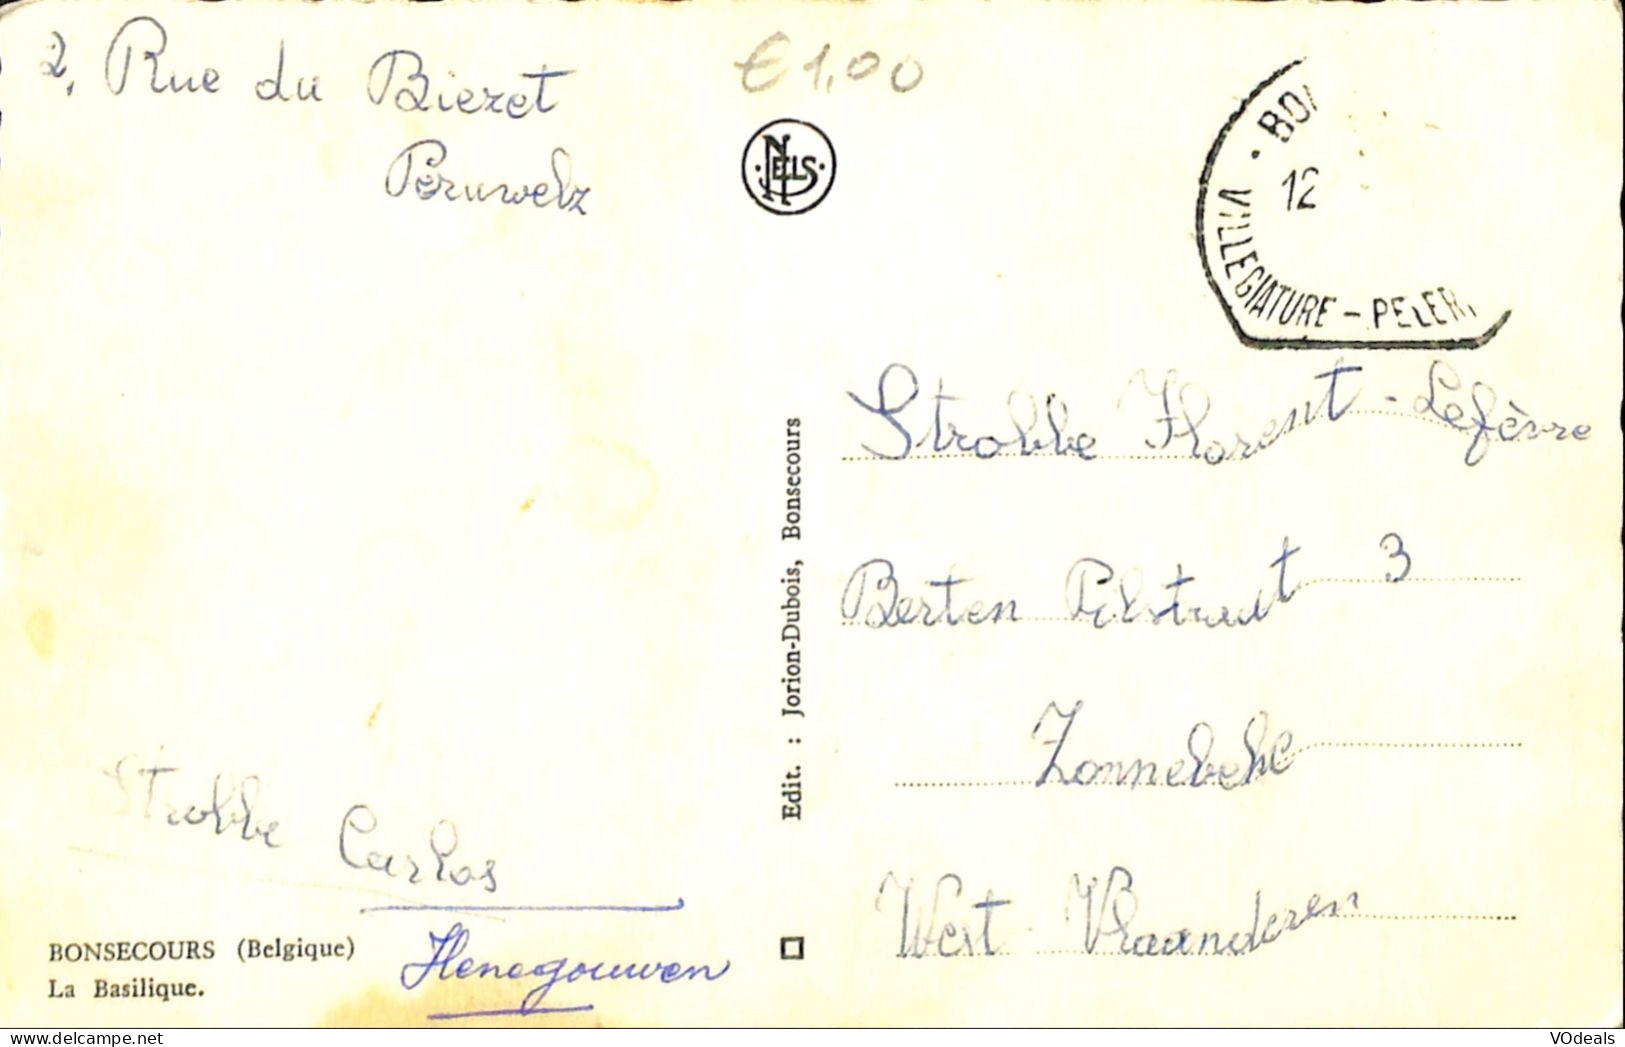 2, Rue du Biezet
Péruwelz
€1,00
NELS
BON
12
VILLEGIATURE - PELERI
Strobbe Florent - Lefèvre
Berten Pilstraat 3
Zonnebeke
West Vlaanderen
Edit. : Jorion-Dubois, Bonsecours
Strobbe Carlos
Henegouwen
BONSECOURS (Belgique)
La Basilique.
VOdeals